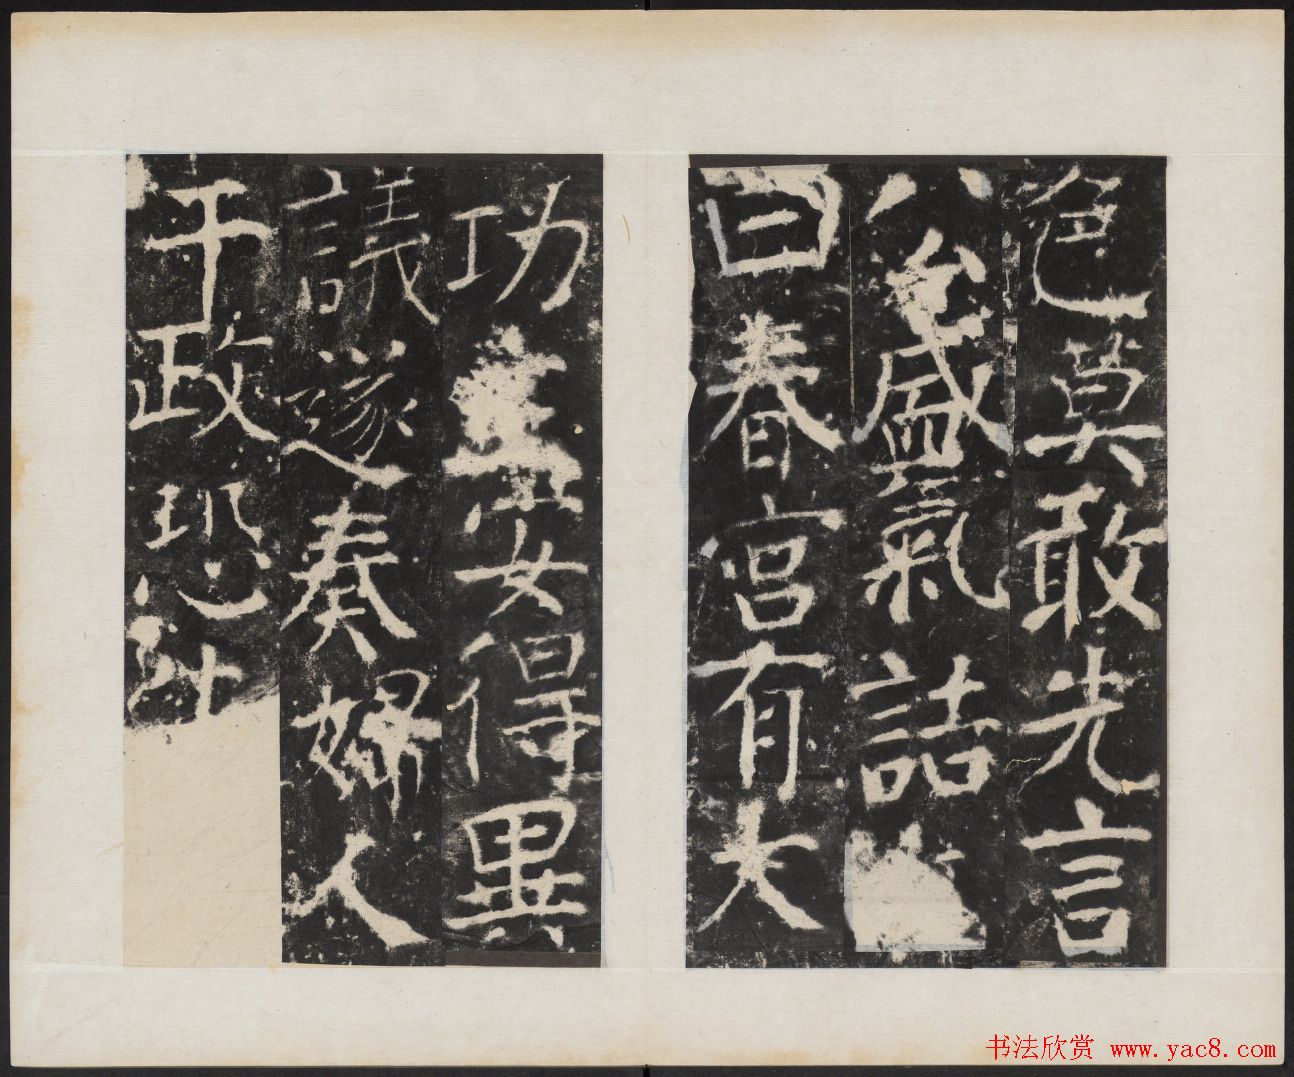 色莫敢先言
公盛氣詰
曰春宮有大
功安得異
議遂奏婦人
干政恐社
书法欣赏 www.yac8.com